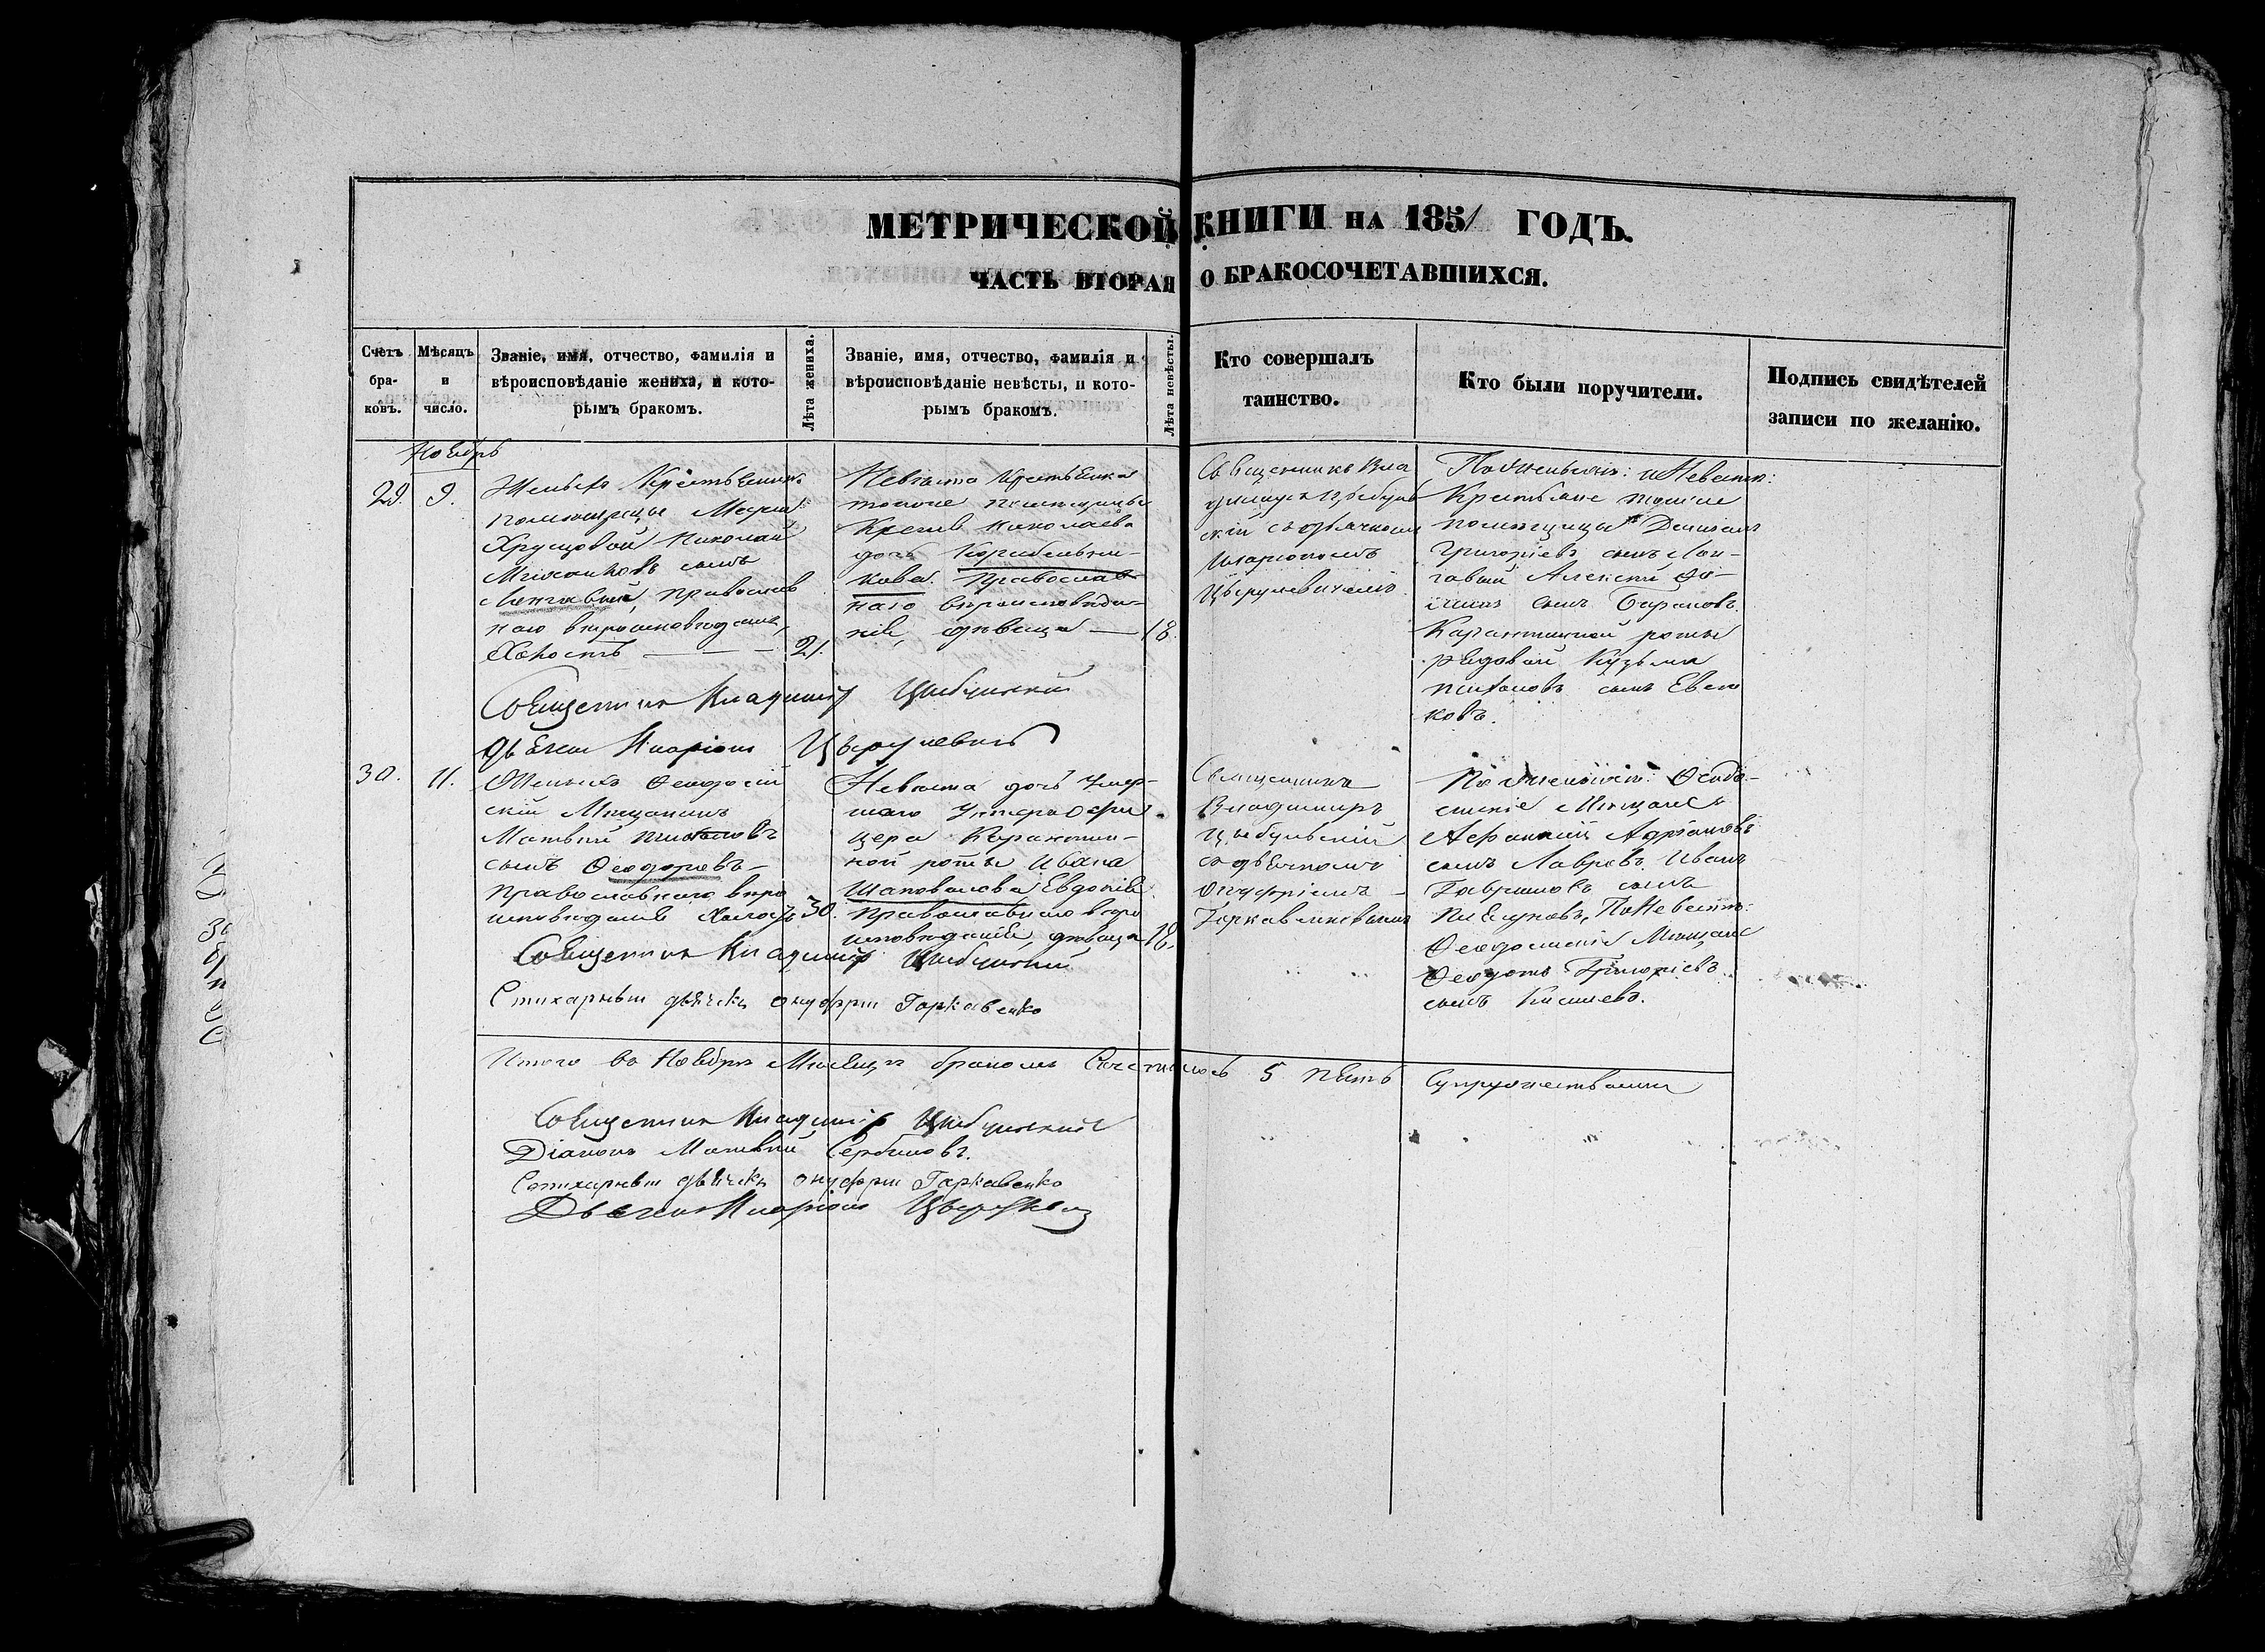 МЕТРИЧЕСКОЙ КНИГИ НА 1851 ГОДЪ.
ЧАСТЬ ВТОРАЯ О БРАКОСОЧЕТАВШИХСЯ.
Счетъ бра- ковъ.
Мѣсяцъ и число.
Званіе, имя, отчество, фамилія и
вѣроисповѣданіе жениха, и кото-
рымъ бракомъ.
Лѣта жениха.
Званіе, имя, отчество, фамилія и
вѣроисповѣданіе невѣсты, и кото-
рымъ бракомъ.
Лѣта невѣсты.
Кто совершалъ
таинство.
Кто были поручители.
Подпись свидѣтелей
записи по желанію.
Ноябрь
29. 9.
Женихъ Крестьянинъ
помещицы Маріи
Хрущовой Николай
сынъ
православ
наго вероисповедания,
Холостъ — 21.
Невѣста Крестьянка
тоиже помещицы
Николаева
дочь Карабельни-
кова. Православ
наго вероисповеда-
нія, девица — 18.
Священникъ Вла
димиръ Цыбуль
скій съ дьячкомъ
Иларіономъ
Церулевичемъ
По Женихе: и Невесте:
Крестьяне тоиже
помещицы Даніилъ
Григорьевъ сынъ Лон-
гавый Алексей
сынъ Барановъ.
Карантинной роты
рядовой Кузьма
сынъ
ковъ.
Священникъ Владиміръ Цибульскій
дьячокъ Иларіонъ Церулевичъ
30. 11.
Женихъ Феодосій
скій Мещанинъ
Матвей
сынъ Феодоровъ
православнаго веро
исповедания Холостъ 30.
Невеста дочь умер-
шаго Унтеръ Офи-
цера Карантин-
ной роты Ивана
Шаповалова Евдокія
православнаго веро
исповеданія, девица 18.
Священникъ
Владимиръ
Цыбульскій
съ дьячкомъ
Онуфріемъ
Горкавенковымъ
По Женихе: Феодо-
сийскіе Мещане
Афанасій Адріановъ
сынъ Лавровъ. Иванъ
Гавриловъ сынъ
По Невесте:
Феодосийскій Мещане
Феодотъ Григоріевъ
сынъ Киселевъ.
Священникъ Владиміръ Цибульскій
Стихарный дьячекъ Онуфрій Горкавенко
Итого въ Ноябре Месяце бракомъ Сочеталось 5 пять Супружествами
Священникъ Владиміръ Цибульскій
Діаконъ Матвей Сербиновъ.
Стихарный дьячекъ Онуфрій Горкавенко
Дьячекъ Иларіонъ Церулевичъ